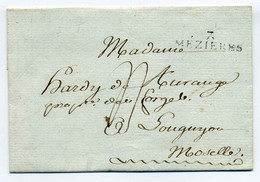 7
MÉZIÈRES
Madame
Hardy de Aurange
propre des forges
Longuyon
Moselle